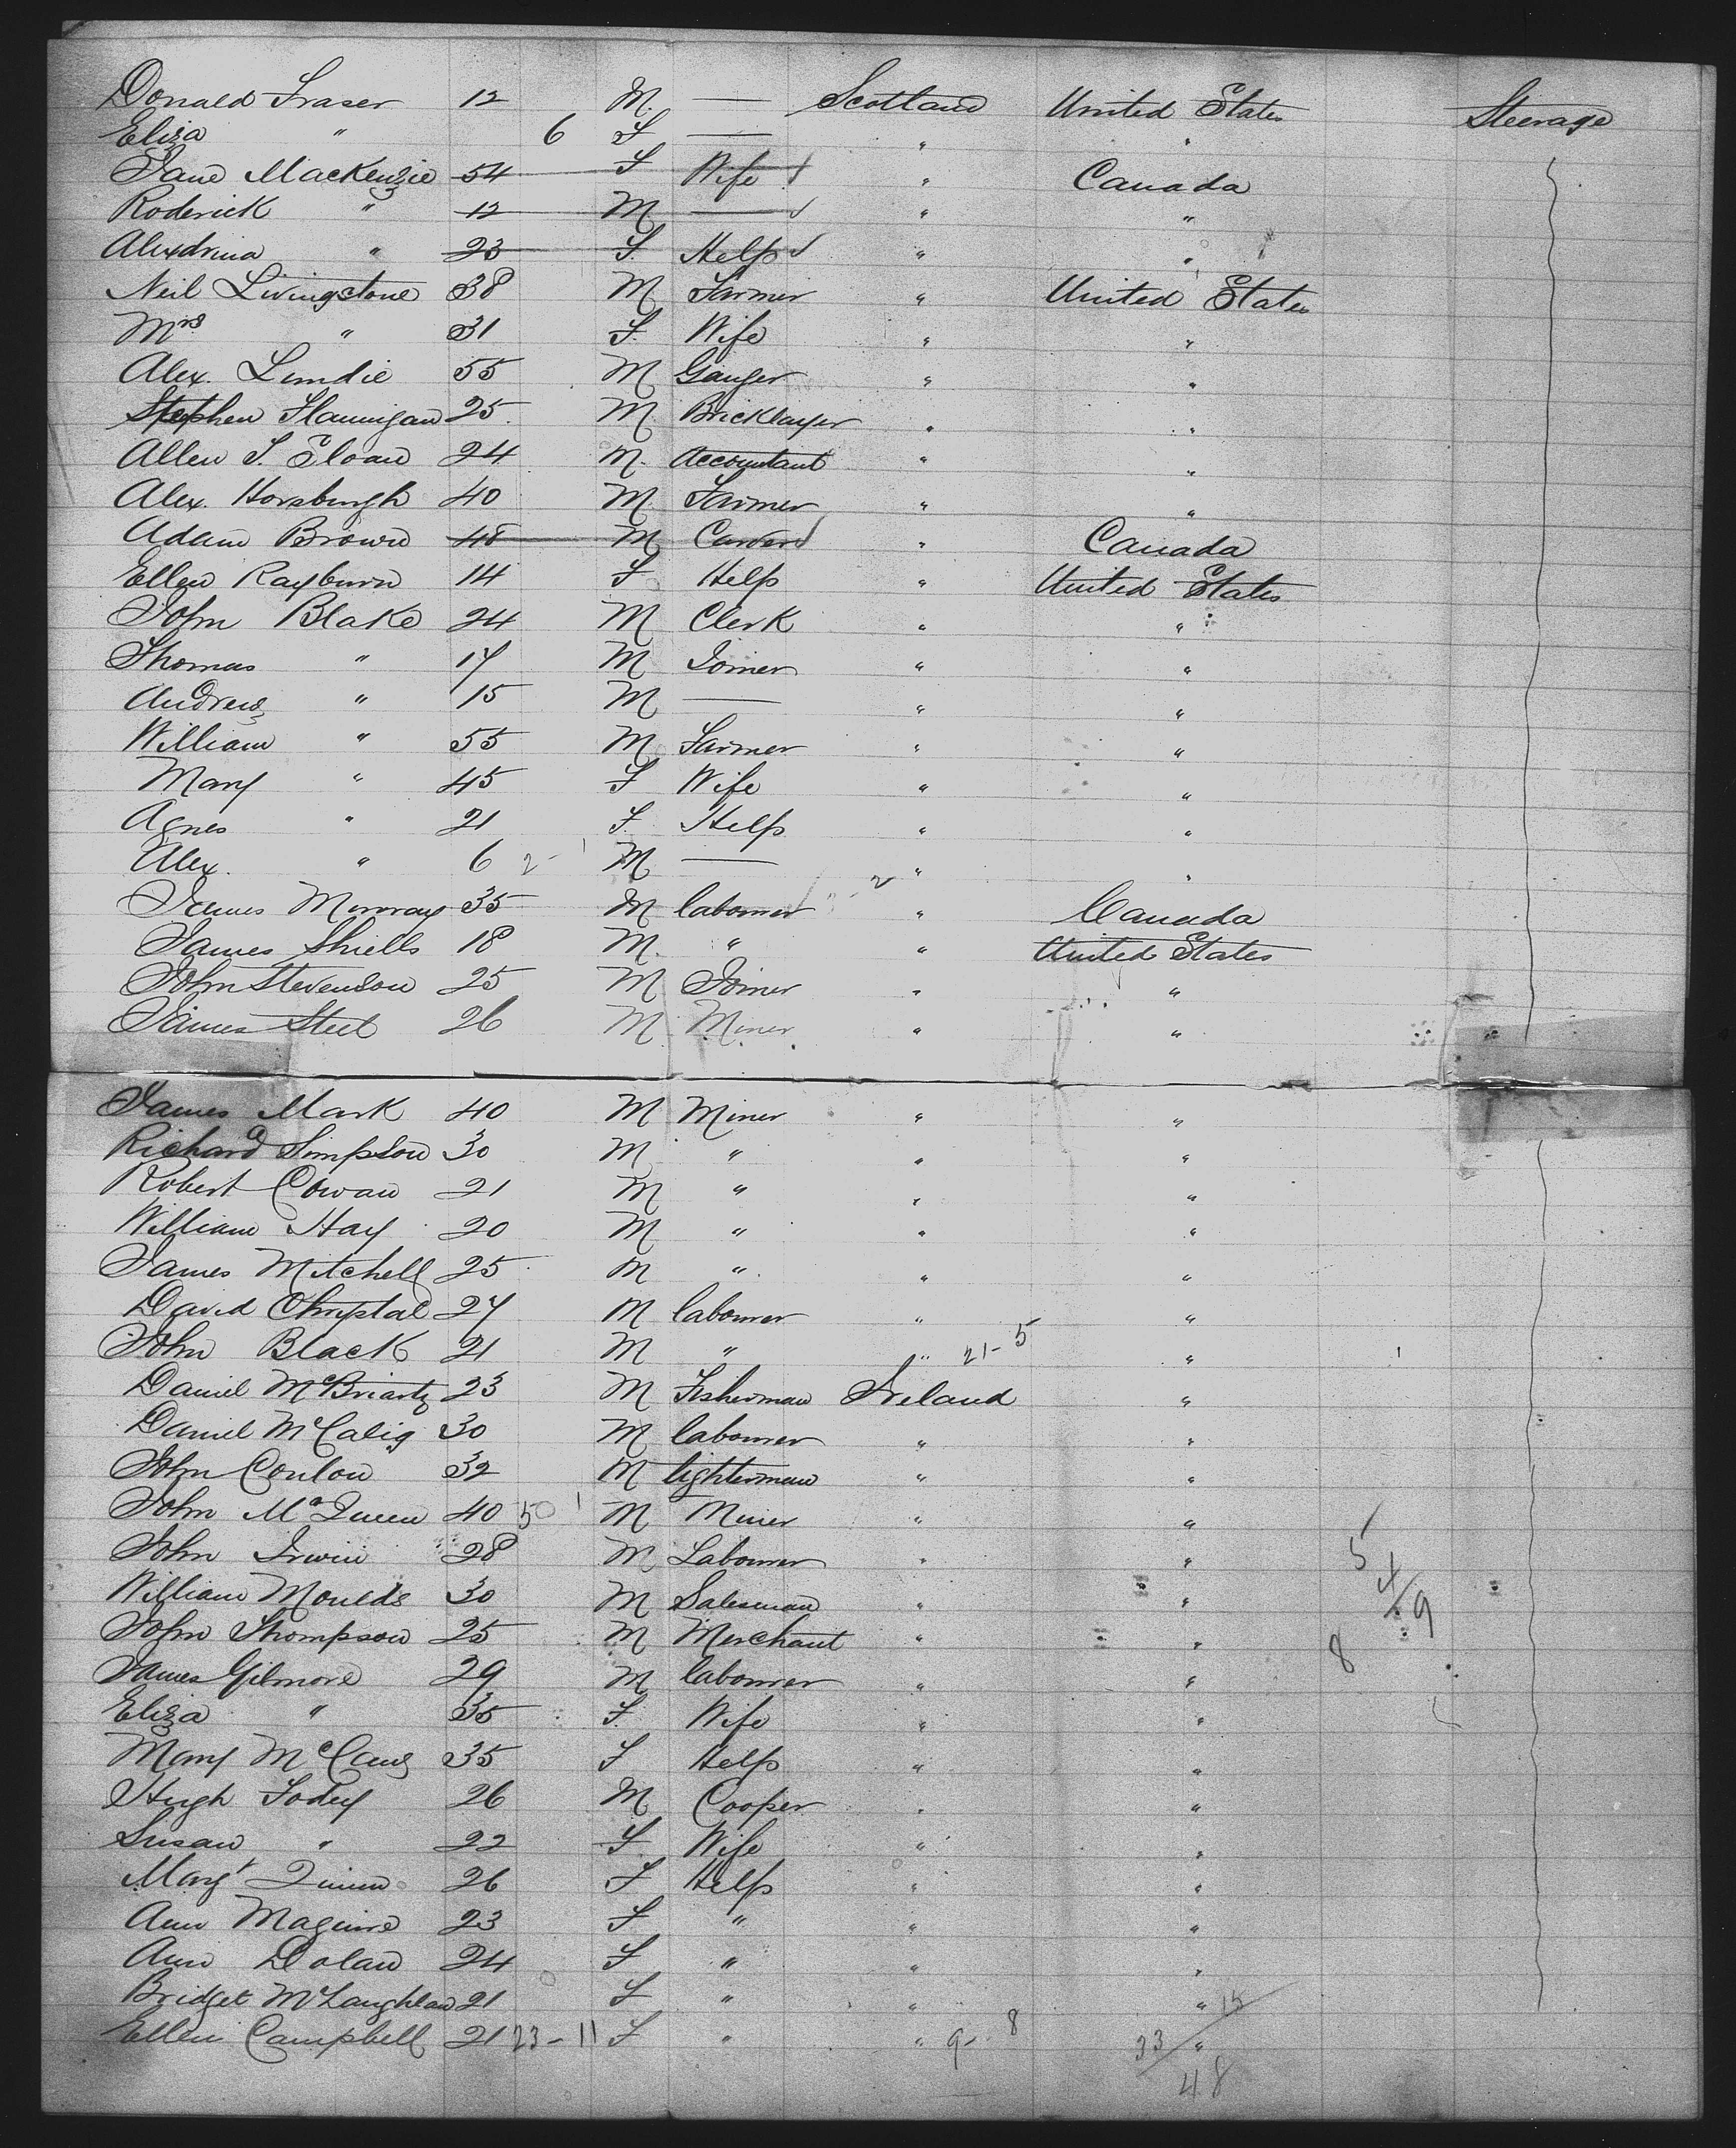 Donald Fraser 12 M. — Scotland United States Steerage
Eliza " 6 F — " "
Jane MacKenzie 54 F Wife " Canada
Roderick " 12 M — " "
Alexdrina " 23 F. Help " "
Neil Livingstone 38 M Farmer " United States
Mrs " 31 F. Wife " "
Alex. Lundie 55 M Gauger " "
Stephen Flannigan 25 M Bricklayer " "
Allen S. Sloan 24 M. Accountant " "
Alex. Horsburgh 40 M. Farmer " "
Adam Brown 48 M Carver " Canada
Ellen Rayburn 14 F Help " United States
John Blake 24 M Clerk " "
Thomas " 17 M Joiner " "
Andrew " 15 M — " "
William " 55 M Farmer " "
Mary " 45 F Wife " "
Agnes " 21 F. Help " "
Alex. " 6 2 - 1 M — " "
James Murray 35 M labourer " Canada
James Shiells 18 M. " " United States
John Stevenson 25 M Joiner " "
James Steel 26 M Miner " "
James Mark 40 M Miner " "
Richard Simpson 30 M " " "
Robert Cowan 21 M " " "
William Hay 20 M " " "
James Mitchell 25 M " " "
David Chrystal 27 M labourer " "
John Black 21 M " " 21-5 "
Daniel McBriarty 23 M Fisherman Ireland "
Daniel McCalig 30 M labourer " "
John Conlon 32 M lighterman " "
John McQueen 40 50 1 M Miner " "
John Irwin 28 M Labourer " " 5
William Moulds 30 M Salesman " " 4/9
John Thompson 25 M Merchant " " 8
James Gilmore 29 M labourer " "
Eliza " 35 F. Wife " "
Mary McCaug 35 F Help " "
Hugh Fodey 26 M Cooper " "
Susan " 22 F Wife " "
Margt Quinn 26 F Help " "
Ann Maguire 23 F " " "
Ann Dolan 24 F " " "
Bridget McLaughlan 21 F " " " 15
Ellen Campbell 21 23-11 F " " 9-8 33 "
48